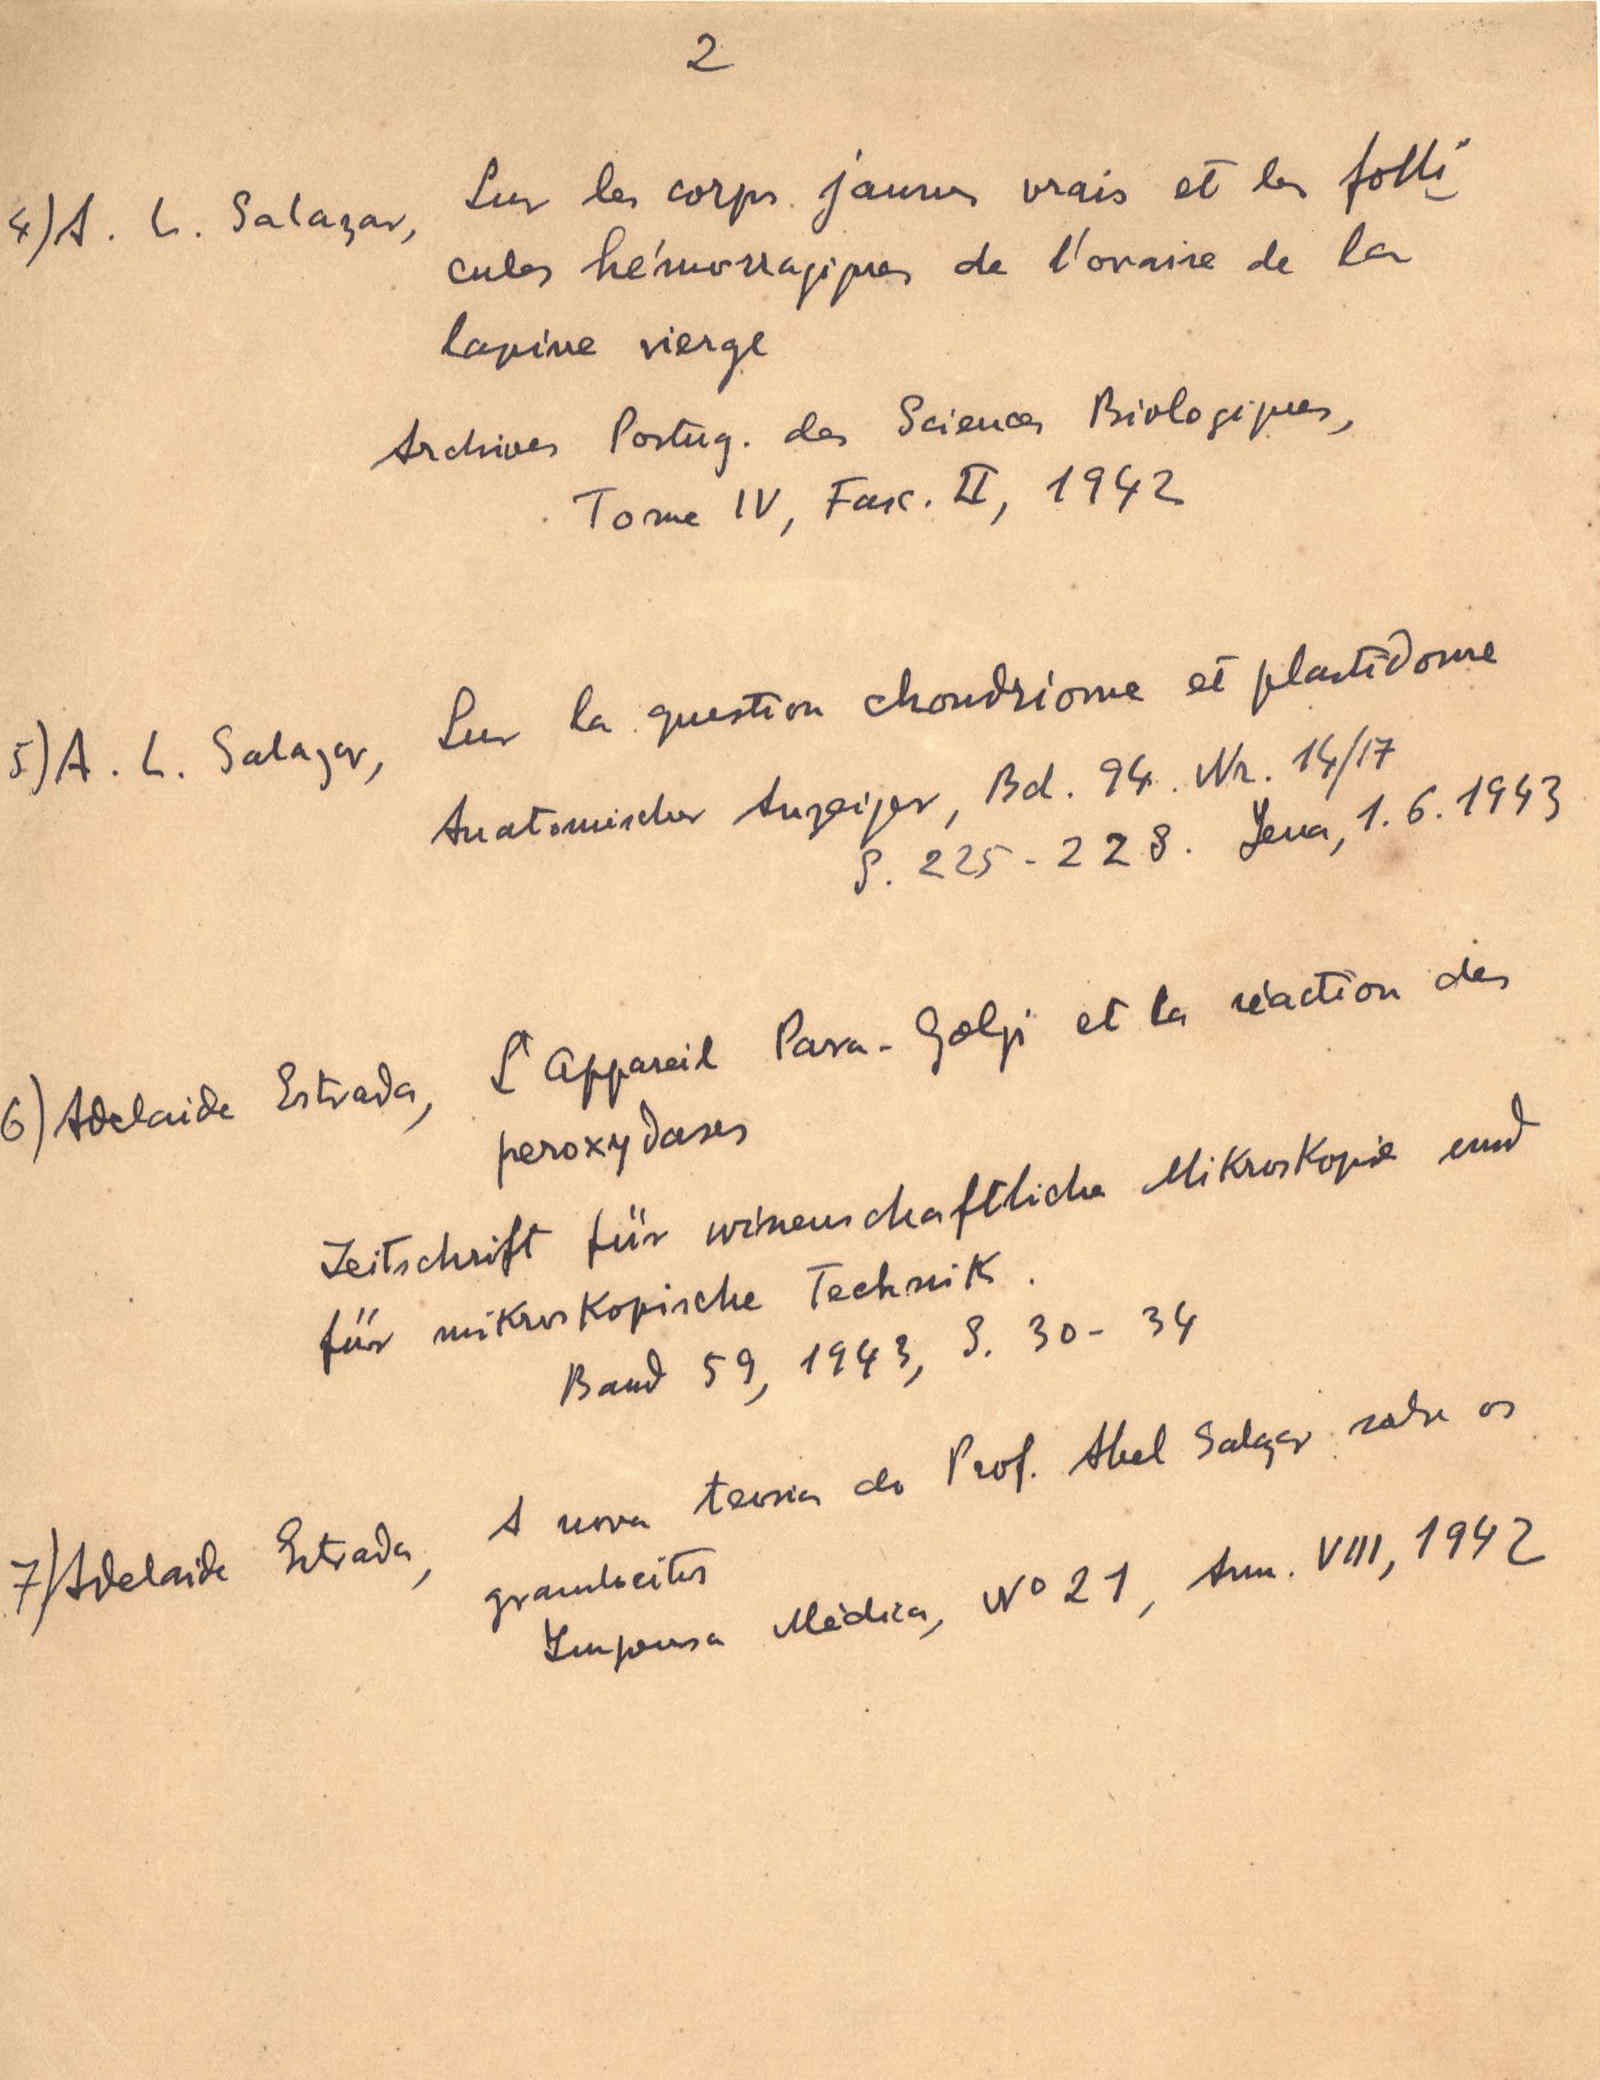 2
4) A. L. Salazar, Sur les corps jaunes vrais et les folli-
cules hémorragiques de l'ovaire de la
lapine vierge
Archives Portug. des Sciences Biologiques,
Tome IV, Fasc. II, 1942
5) A. L. Salazar, Sur la question chondriome et plastidome
Anatomischer Anzeiger, Bd. 94. Nr. 14/17
S. 225-228. Jena, 1.6.1943
6) Adelaide Estrada, L'Appareil Para-Golgi et la réaction des
peroxydases
Zeitschrift für wissenschaftliche Mikroskopie und
für mikroskopische Technik.
Band 59, 1943, S. 30-34
7) Adelaide Estrada, A nova teoria do Prof. Abel Salazar sobre os
granulocitos
Imprensa Médica, Nº 21, Ann. VIII, 1942